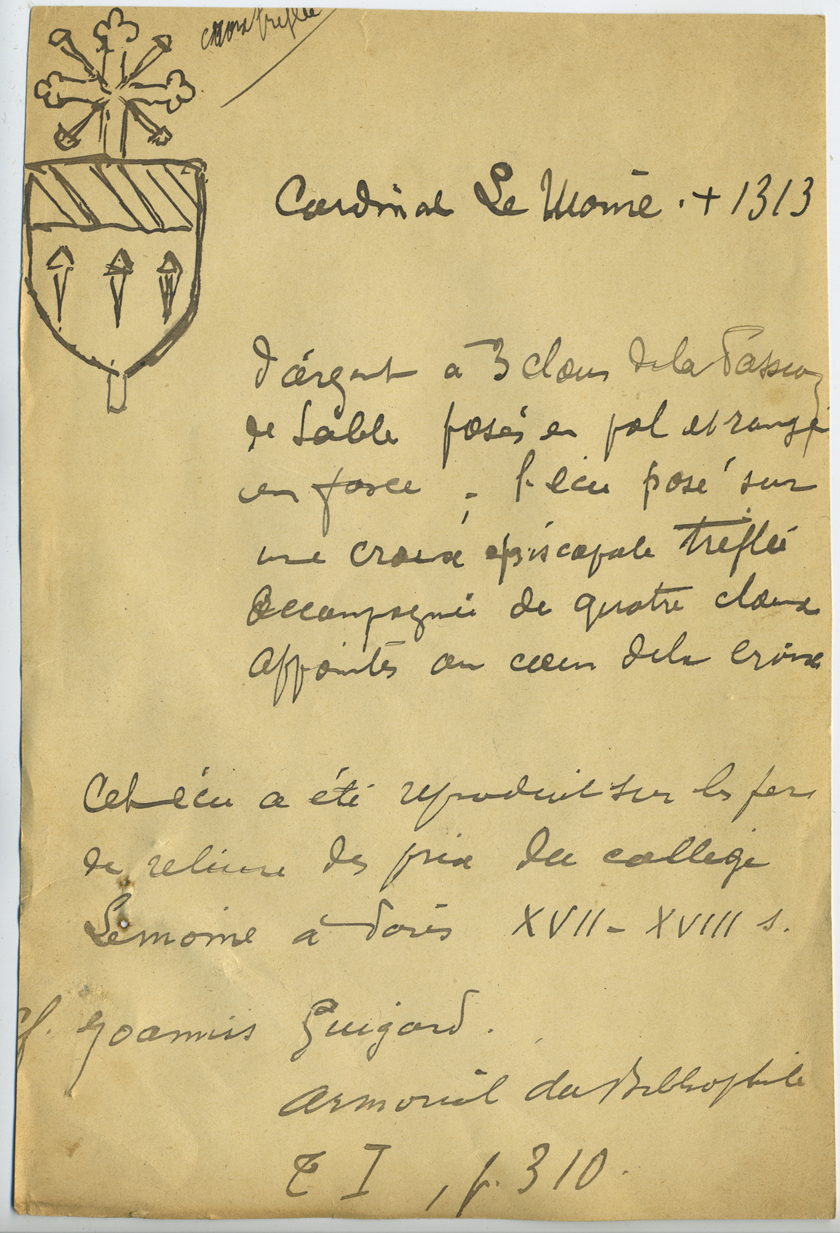 croix treflée
Cardinal Le Moine . + 1313
d'argent à 3 clous de la Passion
de sable posés en pal et rangés
en fasce ; l'écu posé sur
une croix épiscopale tréflée
accompagnée de quatre clous
appointés au cœur de la croix
Cet écu a été reproduit sur les fers
de reliure des prix du collège
Lemoine à Paris XVII - XVIII s.
cf. Joannis Guigard .
Armorial du Bibliophile
T I , p. 310.